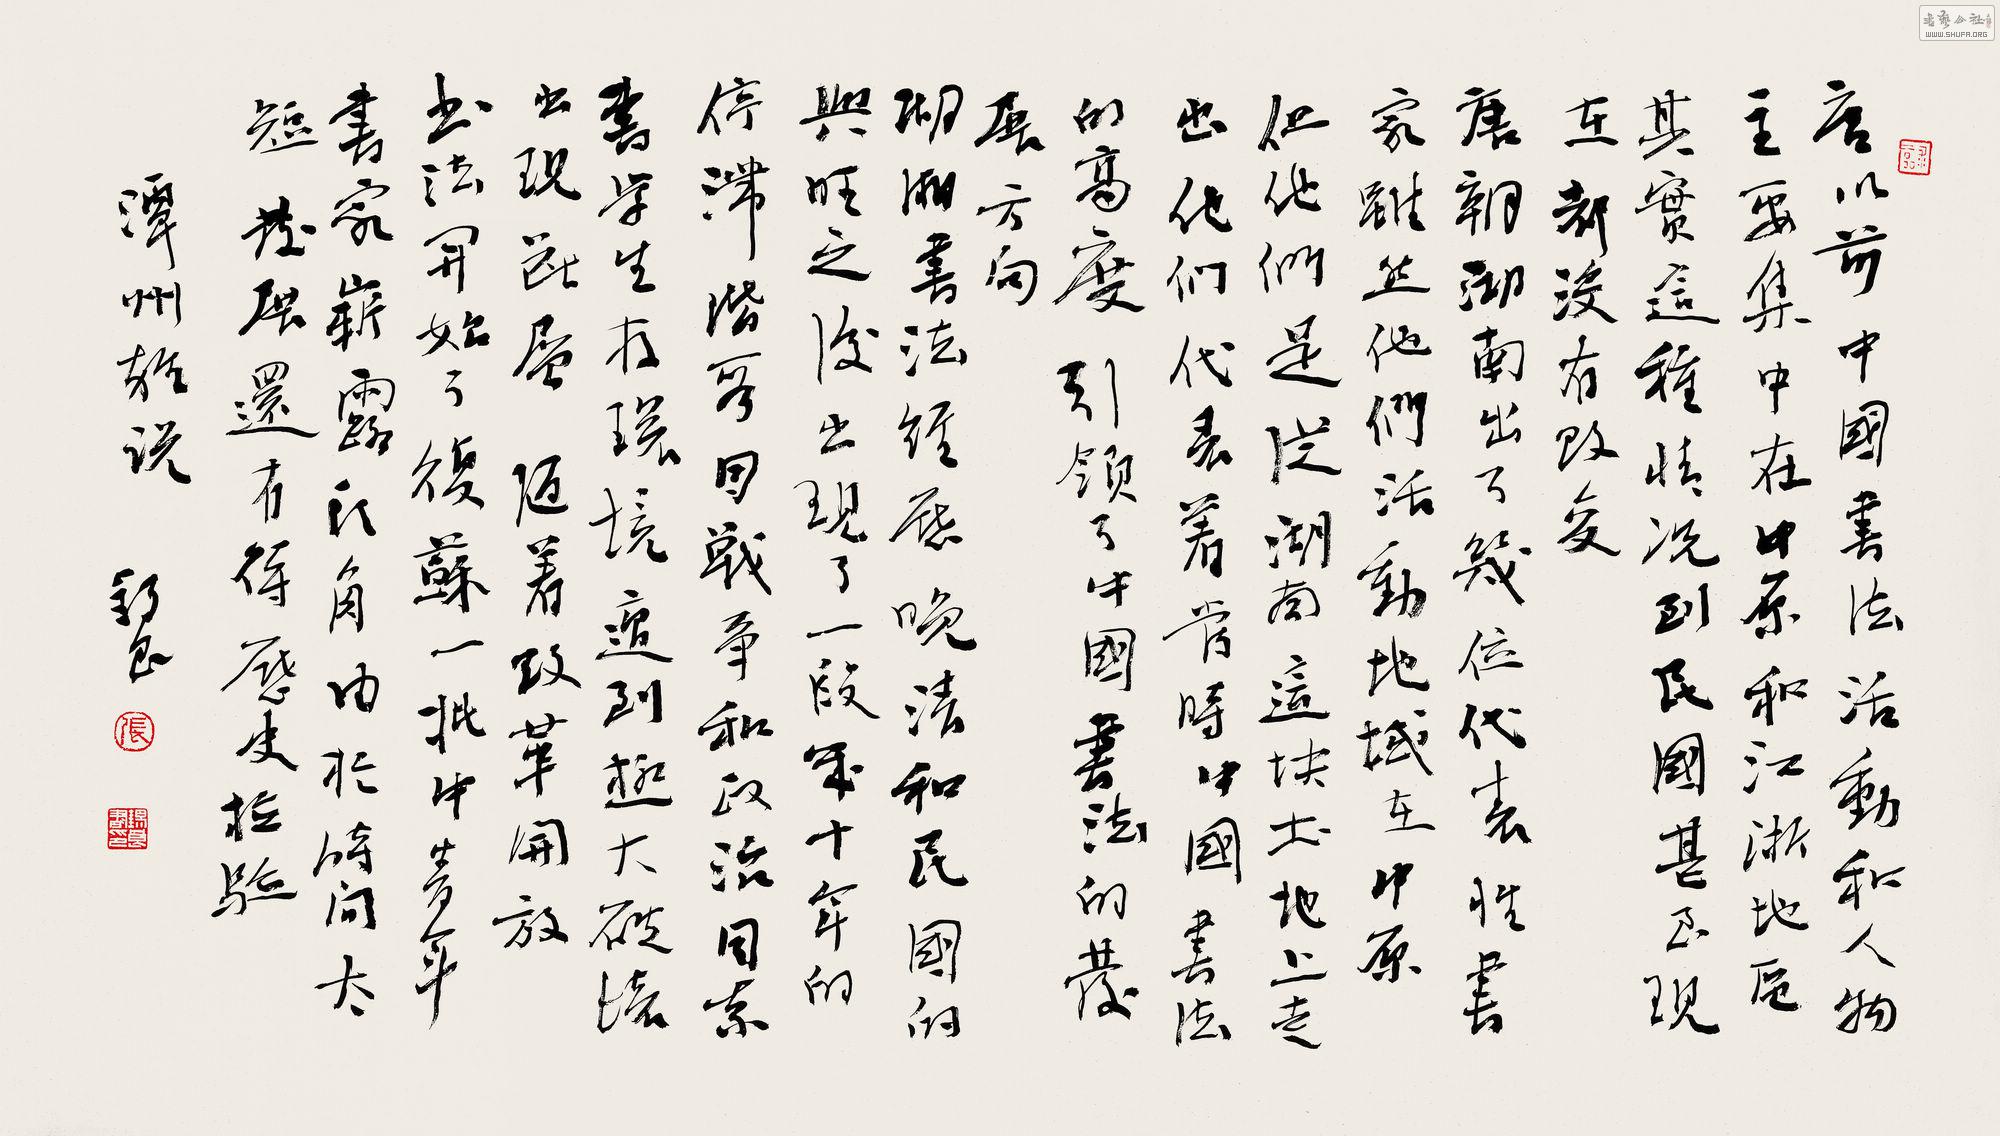 唐以前中國書法活動和人物
主要集中在中原和江浙地區
其實這種情况到民國甚至現
在都没有改变
唐朝湖南出了幾位代表性書
家雖然他們活動地域在中原
但他們是從湖南這块土地上走
出他们代表着當時中國書法
的高度引領了中國書法的發
展方向
湖湘書法經歷晚清和民國的
興旺之後出現了一段幾十年的
停滞階段因戰争和政治因素
書学生存環境遭到極大破壞
出現断層随着改革開放
书法開始了復蘇一批中青年
書家嶄露头角由於時间太
短發展還有待歷史检驗
潭州雜说
WWW.SHUFA.ORG